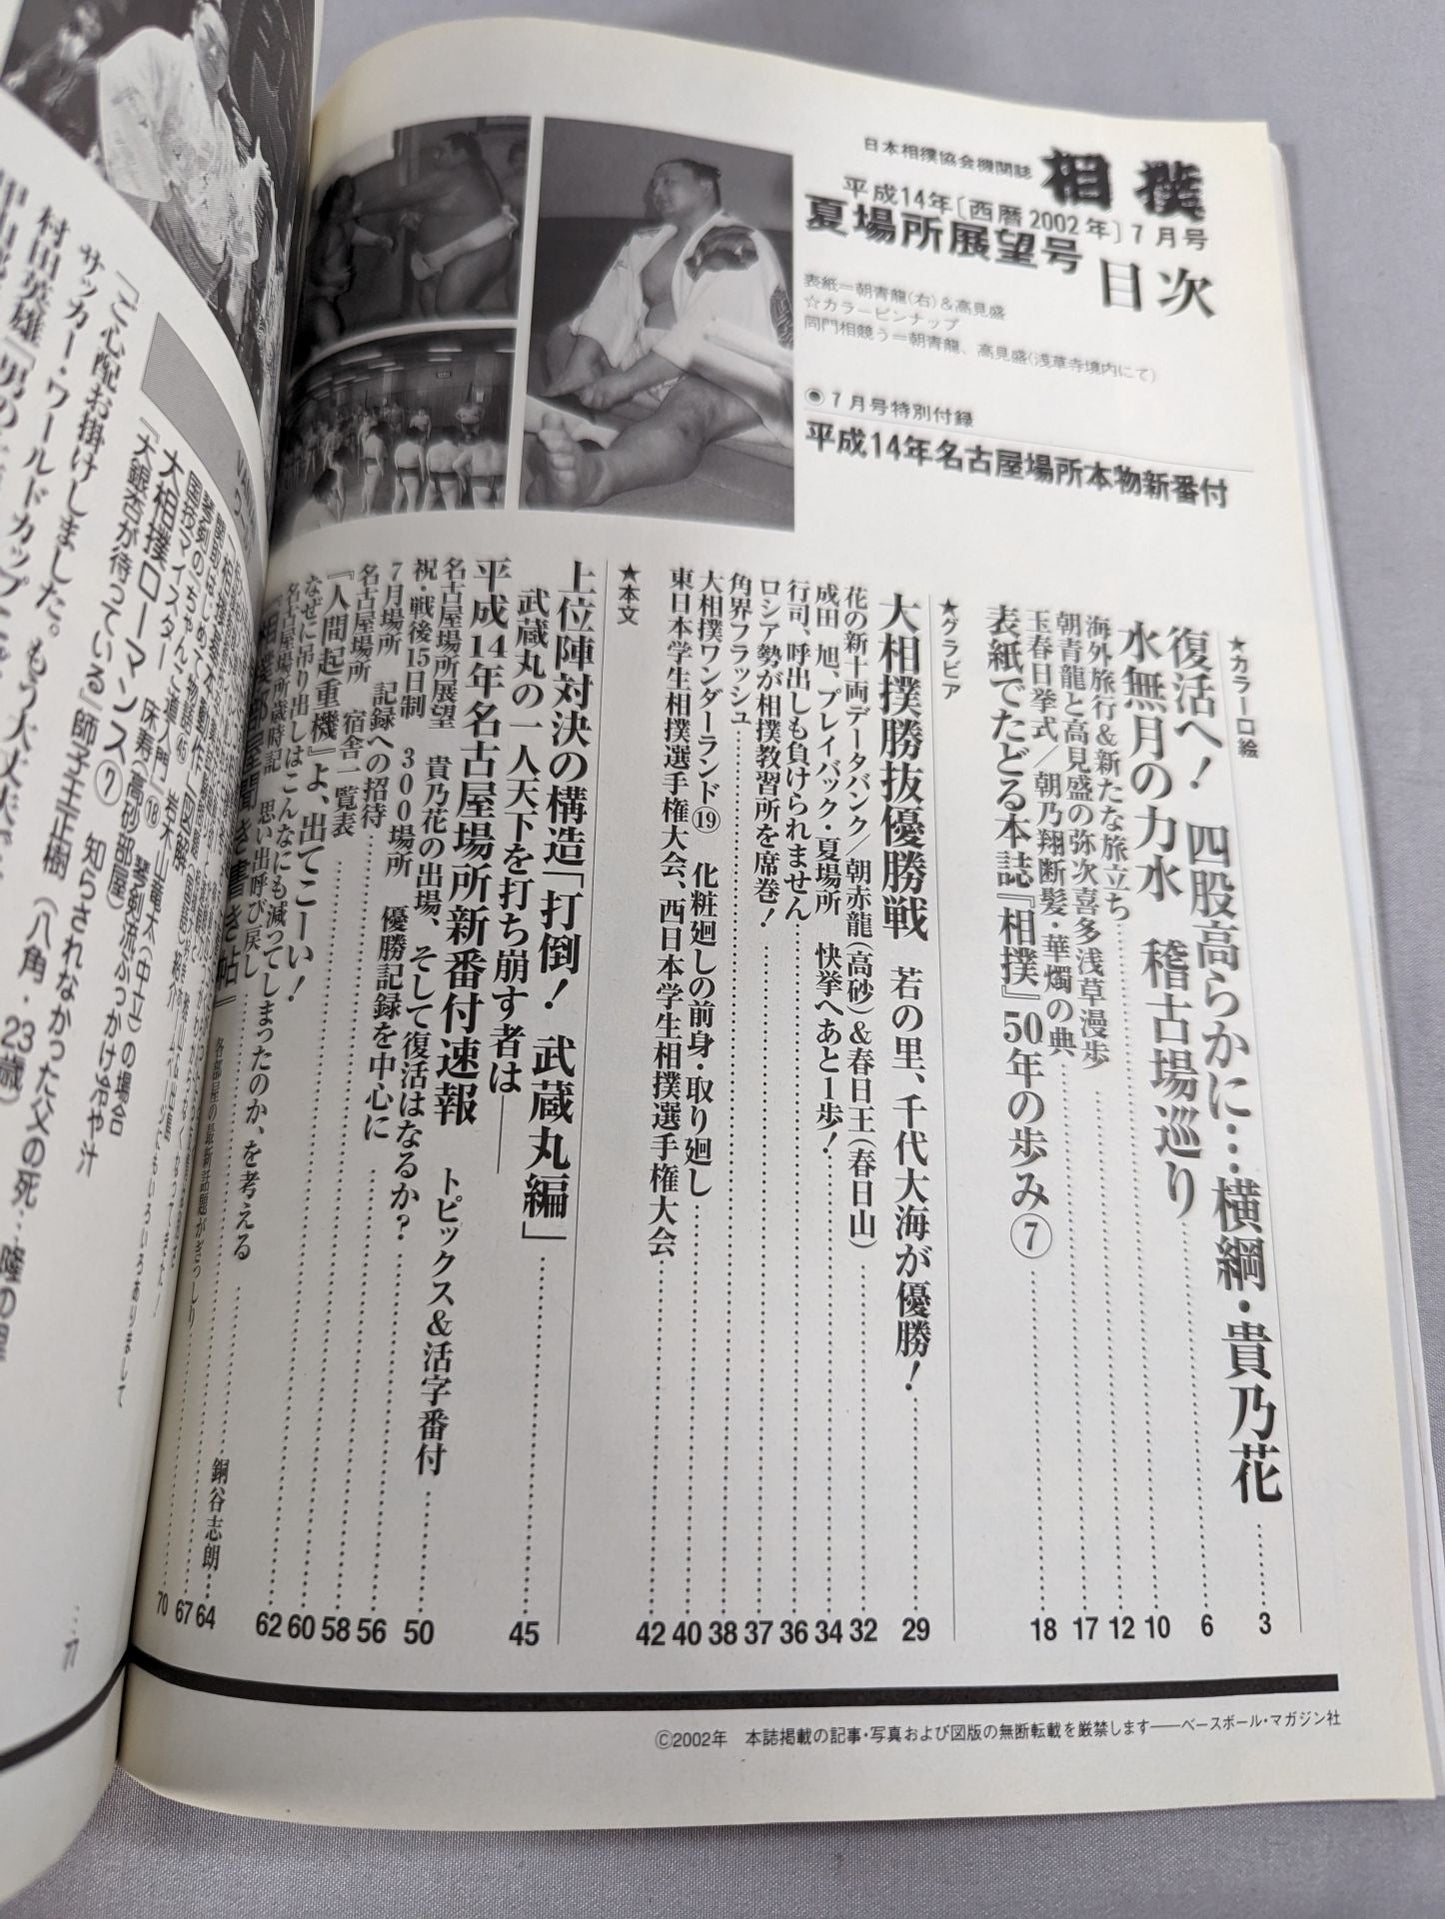 日本相撲協会機関誌
相撲
平成14年〔西暦2002年〕7月号
夏場所展望号
目次
表紙＝朝青龍(右)&高見盛
☆カラーピンナップ
同門相競う＝朝青龍、高見盛(浅草寺境内にて)
◉7月号特別付録
平成14年名古屋場所本物新番付
★カラー口絵
復活へ！ 四股高らかに…横綱・貴乃花 3
水無月の力水 稽古場巡り 6
海外旅行&新たな旅立ち 10
朝青龍と高見盛の弥次喜多浅草漫歩 12
玉春日挙式／朝乃翔断髪・華燭の典 17
表紙でたどる本誌『相撲』50年の歩み⑦ 18
★グラビア
大相撲勝抜優勝戦 若の里、千代大海が優勝！ 29
花の新十両データバンク／朝赤龍(高砂)&春日王(春日山) 32
成田 旭、プレイバック・夏場所 快挙へあと1歩！ 34
行司、呼出しも負けられません 36
ロシア勢が相撲教習所を席巻！ 37
角界フラッシュ 38
大相撲ワンダーランド⑲ 化粧廻しの前身・取り廻し 40
東日本学生相撲選手権大会、西日本学生相撲選手権大会 42
★本文
上位陣対決の構造「打倒！ 武蔵丸編」 45
武蔵丸の一人天下を打ち崩す者は——
平成14年名古屋場所新番付速報 トピックス&活字番付 50
名古屋場所展望 貴乃花の出場、そして復活はなるか？
祝・戦後15日制 300場所 優勝記録を中心に 56
7月場所 記録への招待
名古屋場所 宿舎一覧表 58
『人間起重機』よ、出てこーい！ 60
なぜに吊り出しはこんなにも減ってしまったのか、を考える
名古屋場所歳時記 思い出呼び戻し 62
相撲部屋聞き書き帖』 各部屋の最新話題がぎっしり 銅谷志朗 64
67
70
岩木山竜太(中立)の場合
琴剣のちゃんこ道入門⑱ 琴剣流ぶっかけ冷や汁
国技マイスター 床寿(高砂部屋)
大相撲ローマンス⑦ 知らされなかった父の死…隆の里
『大銀杏が待っている』師子王正樹(八角・23歳)
「ご心配お掛けしました。もう大丈夫
サッカー・ワールドカップ
村田英雄「男の
77
©2002年 本誌掲載の記事・写真および図版の無断転載を厳禁します——ベースボール・マガジン社